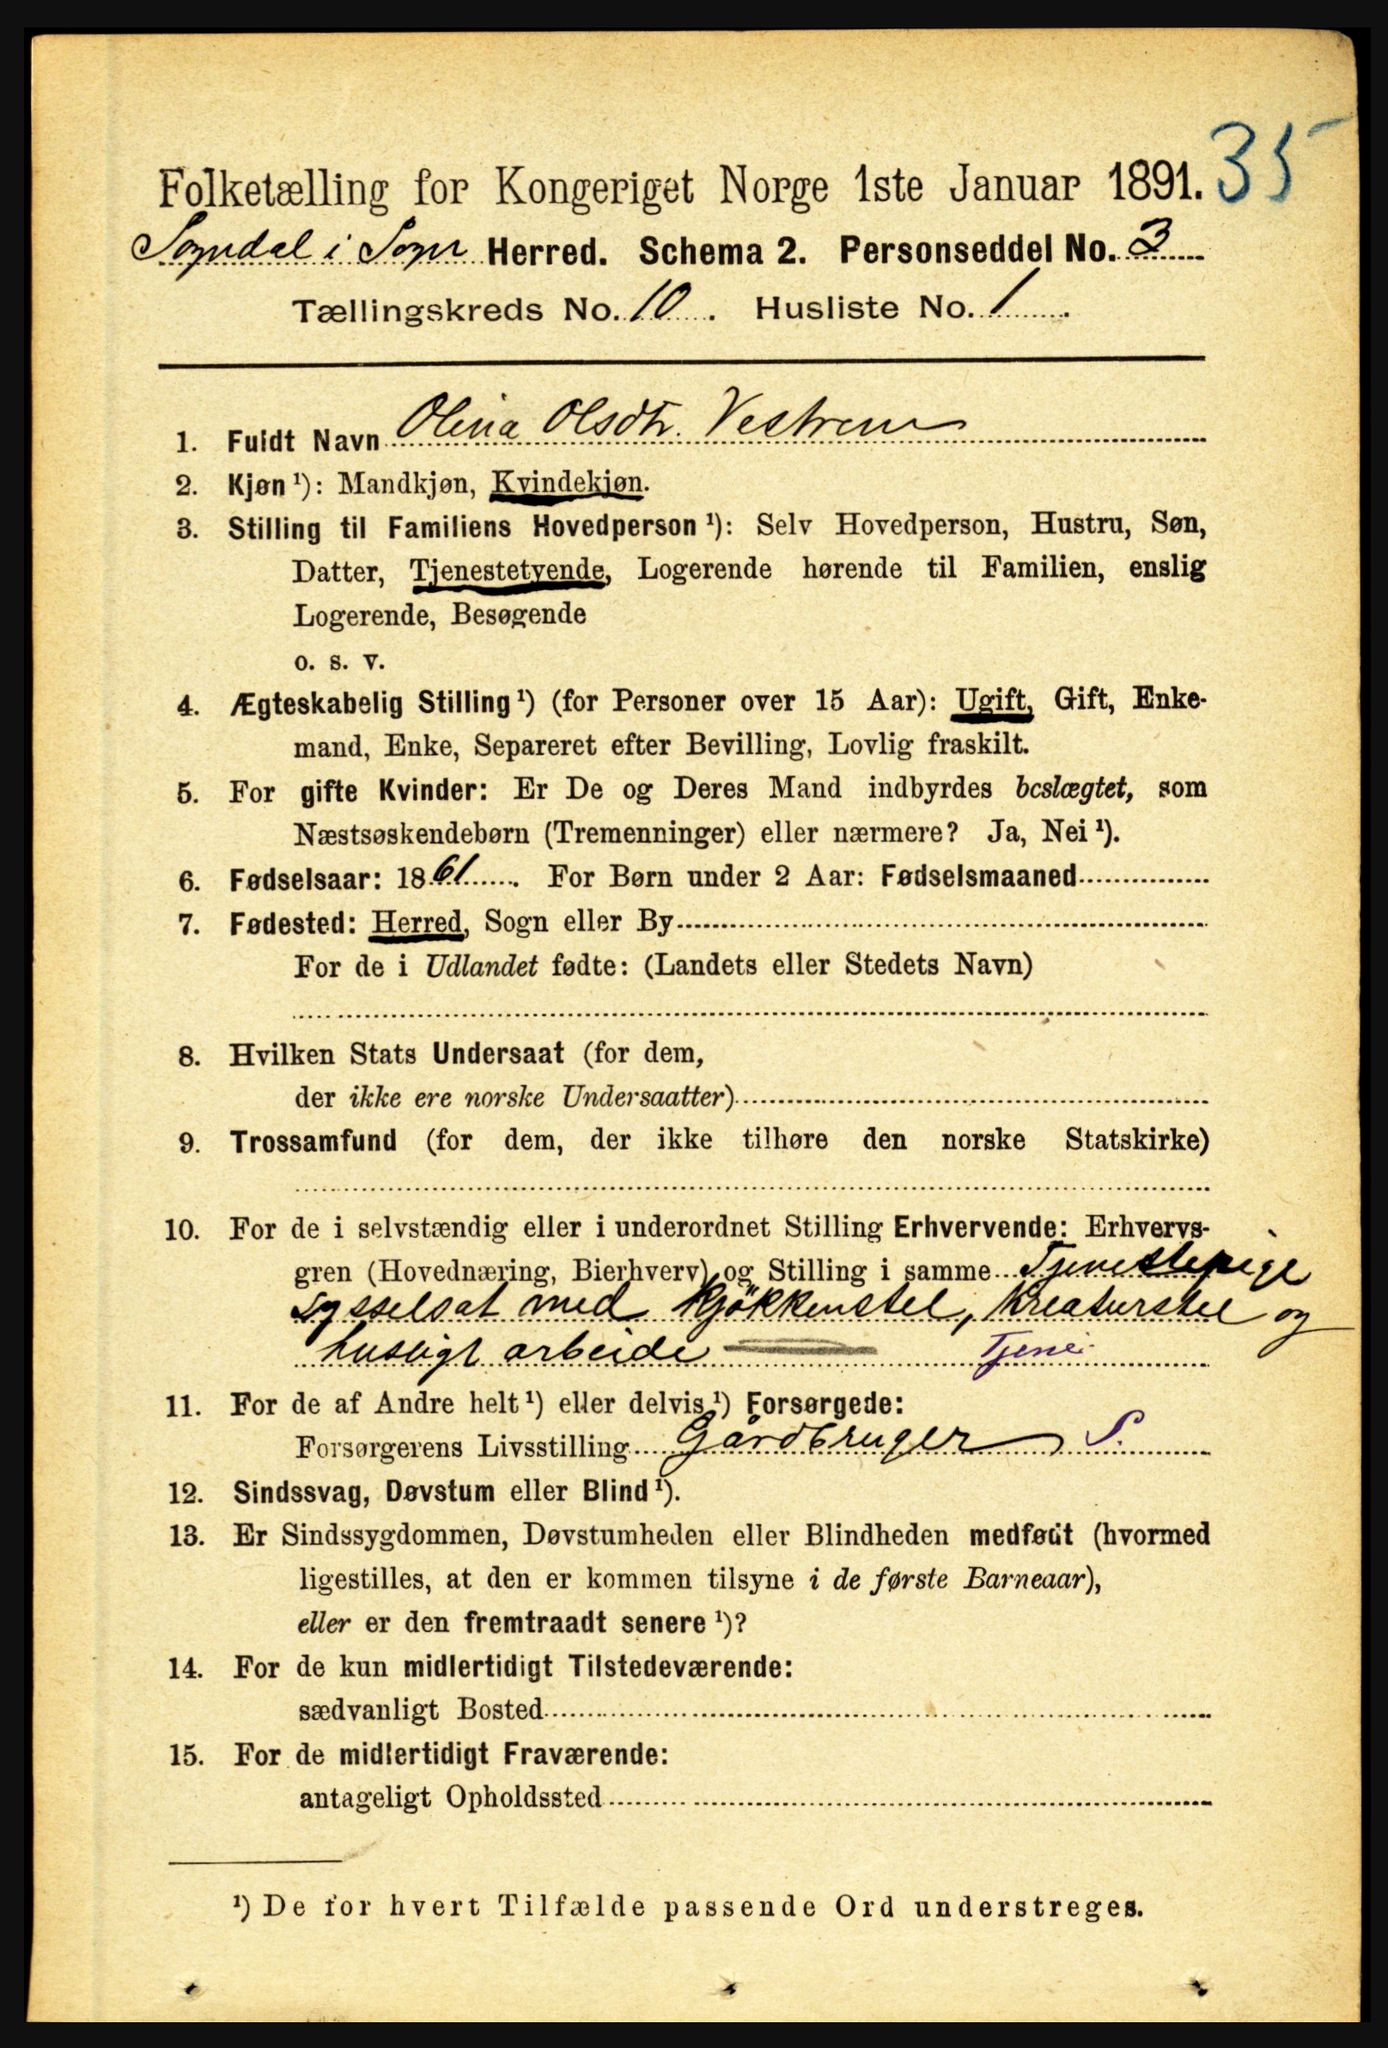 35
Folketælling for Kongeriget Norge 1ste Januar 1891.
Sogndal i Sogn Herred. Schema 2. Personseddel No. 3
Tællingskreds No. 10. Husliste No. 1.
1. Fuldt Navn Olina Olsdtr. Vestrem
2. Kjøn ¹): Mandkjøn, Kvindekjøn.
3. Stilling til Familiens Hovedperson ¹): Selv Hovedperson, Hustru, Søn,
Datter, Tjenestetyende, Logerende hørende til Familien, enslig
Logerende, Besøgende
o. s. v.
4. Ægteskabelig Stilling ¹) (for Personer over 15 Aar): Ugift, Gift, Enke-
mand, Enke, Separeret efter Bevilling, Lovlig fraskilt.
5. For gifte Kvinder: Er De og Deres Mand indbyrdes beslægtet, som
Næstsøskendebørn (Tremenninger) eller nærmere? Ja, Nei ¹).
6. Fødselsaar: 1861. For Børn under 2 Aar: Fødselsmaaned
7. Fødested: Herred, Sogn eller By
For de i Udlandet fødte: (Landets eller Stedets Navn)
8. Hvilken Stats Undersaat (for dem,
der ikke ere norske Undersaatter)
9. Trossamfund (for dem, der ikke tilhøre den norske Statskirke)
10. For de i selvstændig eller i underordnet Stilling Erhvervende: Erhvervs-
gren (Hovednæring, Bierhverv) og Stilling i samme Tjenestepige
sysselsat med Kjøkkenstel, Kreaturstel og
husligt arbeide Tjene.
11. For de af Andre helt ¹) eller delvis ¹) Forsørgede:
Forsørgerens Livsstilling Gårdbruger S.
12. Sindssvag, Døvstum eller Blind ¹).
13. Er Sindssygdommen, Døvstumheden eller Blindheden medfødt (hvormed
ligestilles, at den er kommen tilsyne i de første Barneaar),
eller er den fremtraadt senere ¹)?
14. For de kun midlertidigt Tilstedeværende:
sædvanligt Bosted
15. For de midlertidigt Fraværende:
antageligt Opholdssted
¹) De for hvert Tilfælde passende Ord understreges.